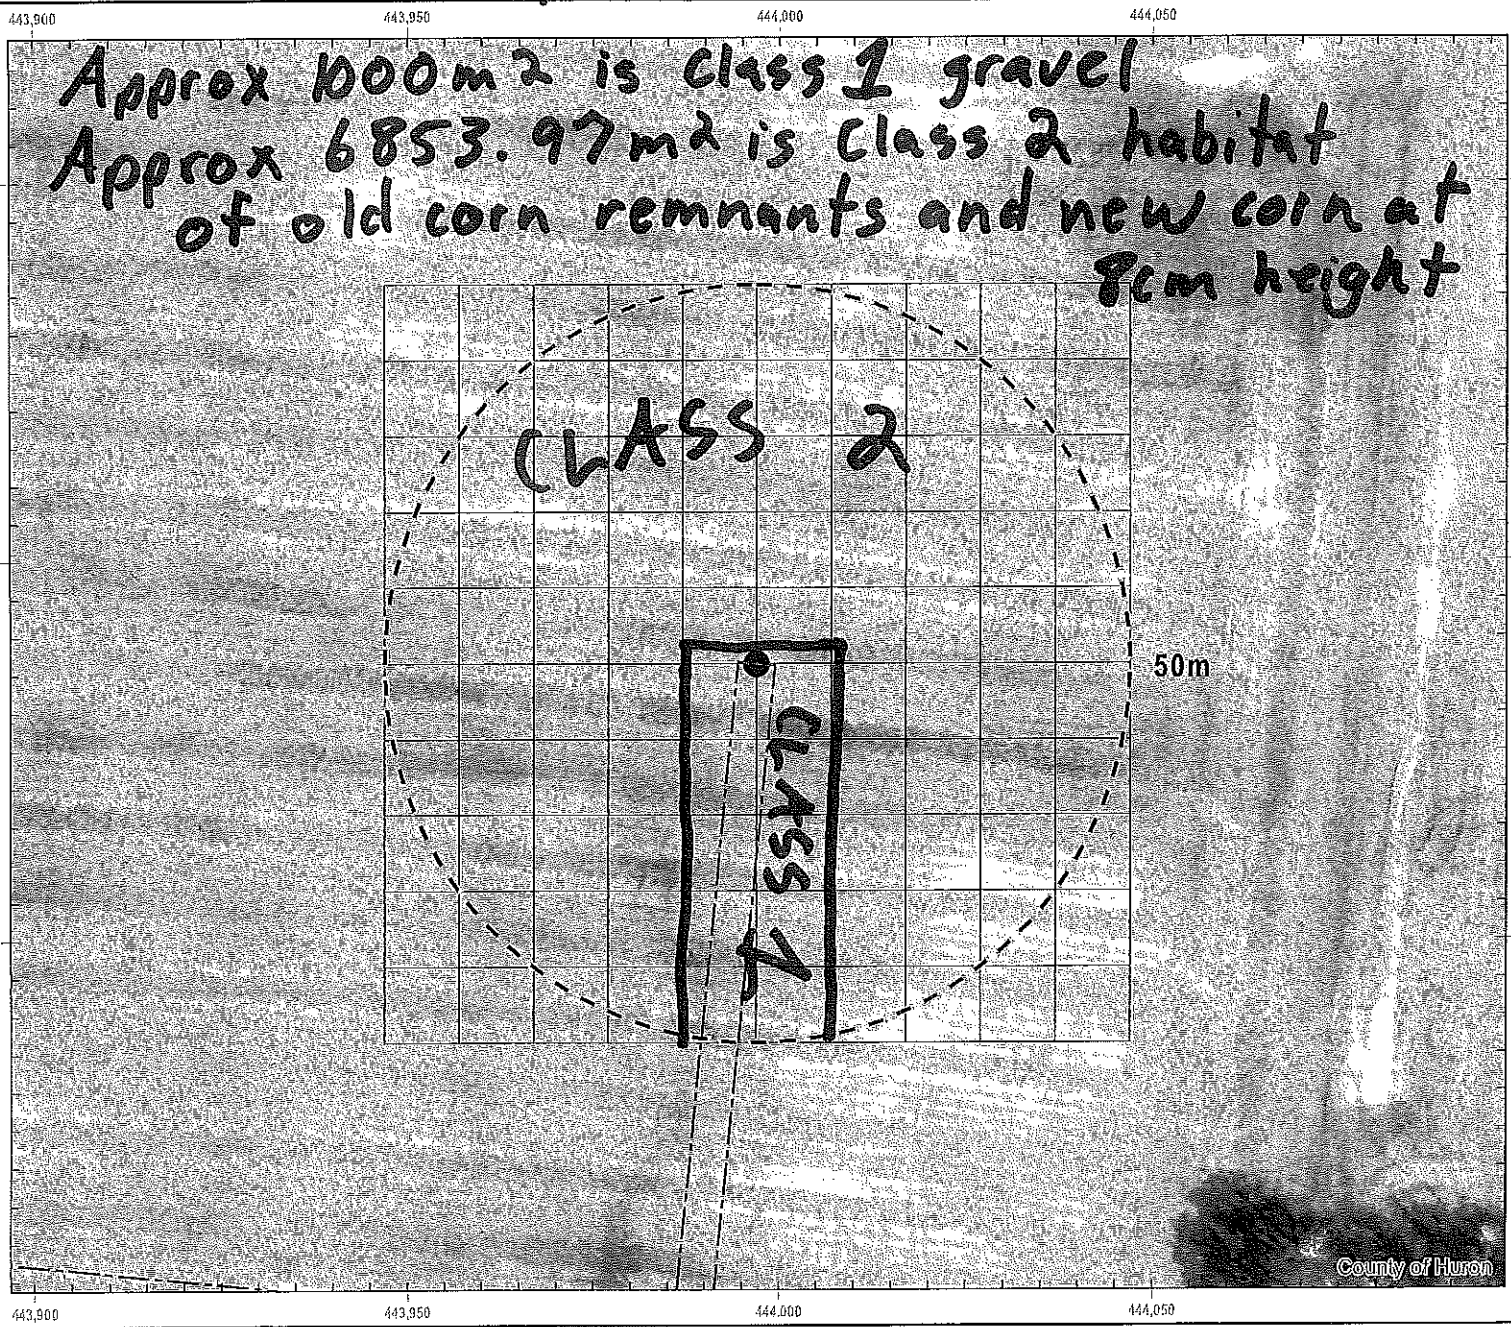 443,900 443,950 444,000 444,050
Approx 1000m2 is Class 1 gravel
Approx 6853.97m2 is Class 2 habitat
of old corn remnants and new corn at
8cm height
CLASS 2
50m
CLASS 1
County of Huron
443,900 443,950 444,000 444,050